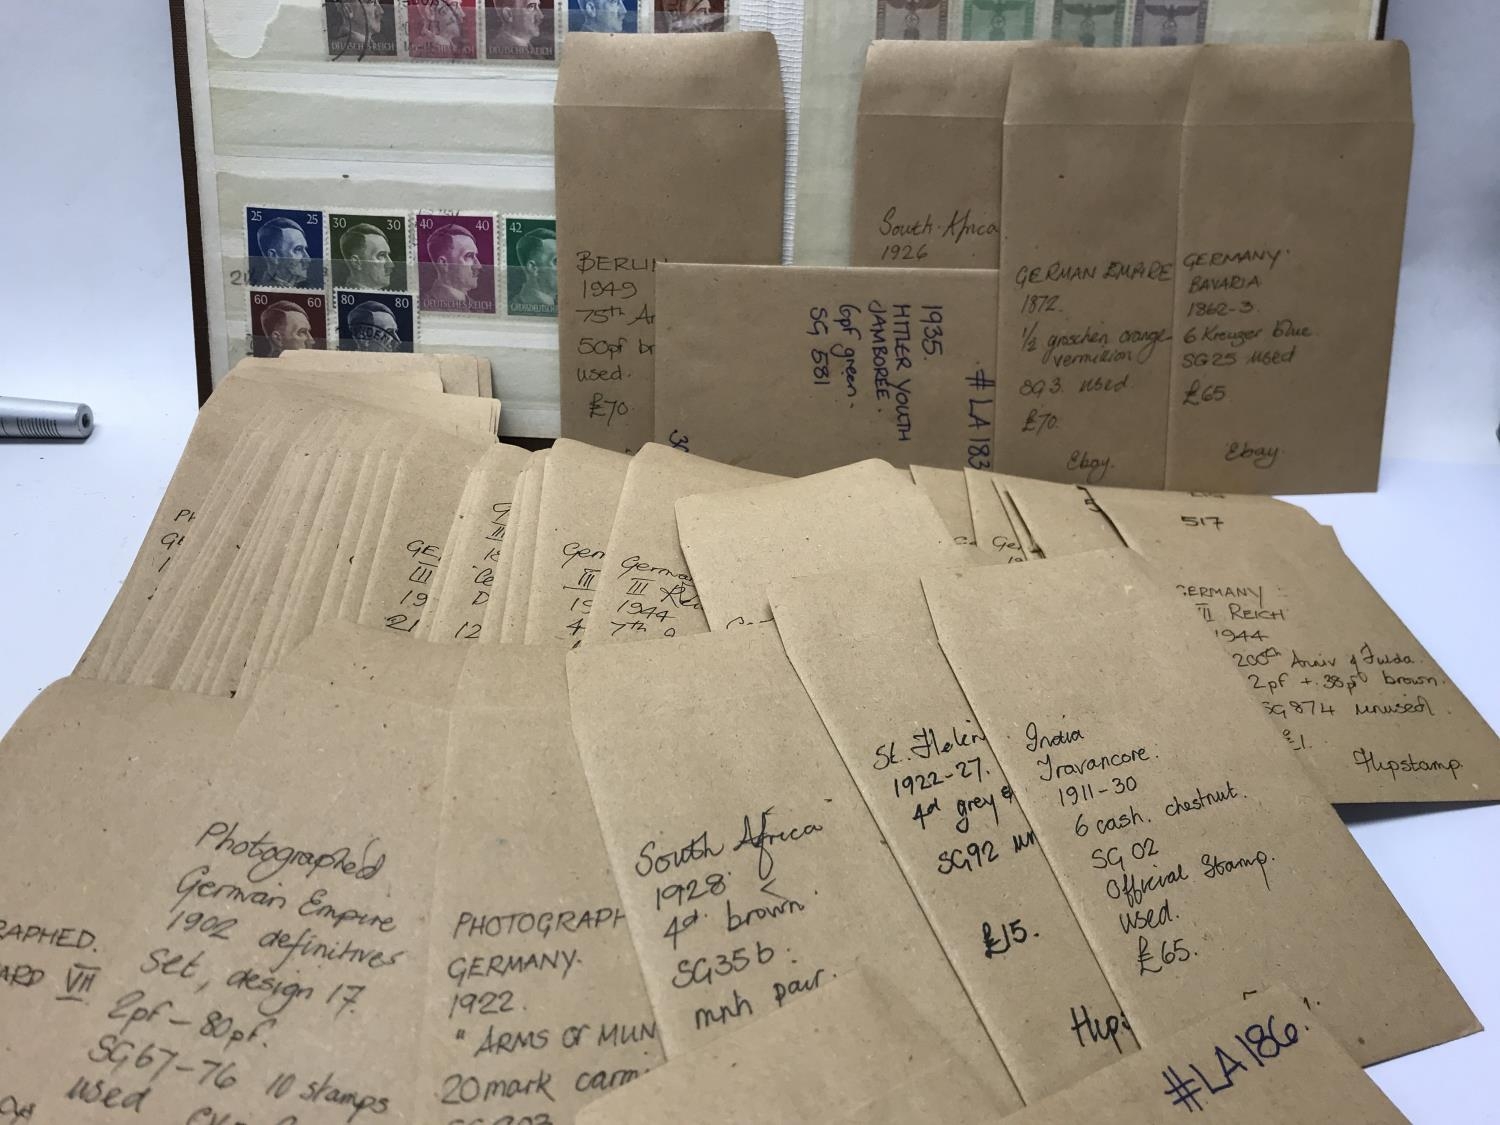 DEUTSCHES REICH
25 25
30 30
40 40
42
DEUTSCHES REICH
60 60
80 80
BERLIN
1949
75th
50pf br
used.
£70.
South Africa
1926
1935.
HITLER YOUTH
JAMBOREE.
6pf green.
SG 581
#LA183
GERMAN EMPIRE
1872.
1/2 groschen orange-
vermillion
SG3 used.
£70.
Ebay.
GERMANY.
BAVARIA
1862-3.
6 Kreuzer blue.
SG25 used
£65.
Ebay.
GE
III
19
21
12
Ger
III
19
4
German
III Re
1944
7th
517
GERMANY:
III REICH
1944
200th Anniv of Fulda.
2pf + 38pf brown.
SG874 unused.
£1.
Hipstamp.
RAPHED.
ARD VII
Photographed
German Empire
1902 definitives
Set, design 17.
2pf - 80pf.
SG67-76 10 stamps
used
PHOTOGRAPH
GERMANY.
1922.
"ARMS OF MUN
20 mark carm
South Africa
1928.
4d. brown.
SG35b.
mnh pair.
St. Helen
1922-27.
4d grey &
SG92
£15.
Hips
India
Travancore.
1911-30
6 cash. chestnut.
SG O2
Official Stamp.
used.
£65.
#LA186